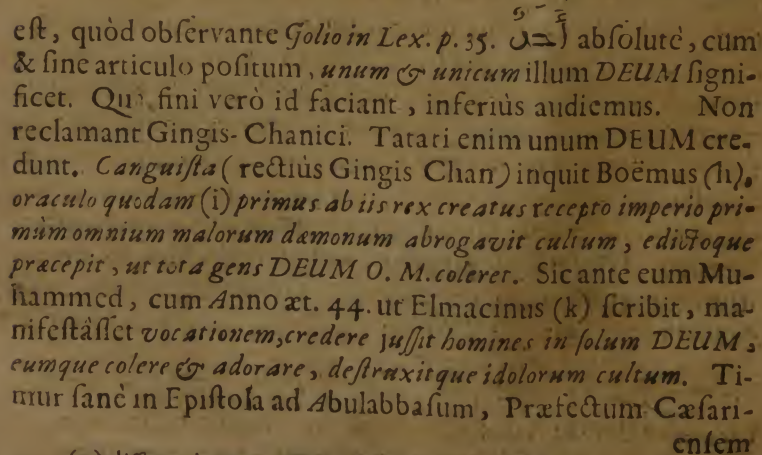 est, quòd observante Golio in Lex. p. 35. أحد absolutè, cum
& sine articulo positum, unum & unicum illum DEUM signi-
ficet. Qui fini verò id faciant, inferiùs audiemus. Non
reclamant Gingis-Chanici. Tatari enim unum DEUM cre-
dunt. Canguista (rectiùs Gingis Chan) inquit Boëmus (h),
oraculo quodam (i) primus ab iis rex creatus recepto imperio pri-
mùm omnium malorum dæmonum abrogavit cultum, edictoque
præcepit, ut tota gens DEUM O. M. coleret. Sic ante eum Mu-
hammed, cum Anno æt. 44. ut Elmacinus (k) scribit, ma-
nifestâsset vocationem, credere jussit homines in solum DEUM,
eumque colere & adorare, destruxitque idolorum cultum. Ti-
mur sanè in Epistola ad Abulabbasum, Præfectum Cæsari-
ensem